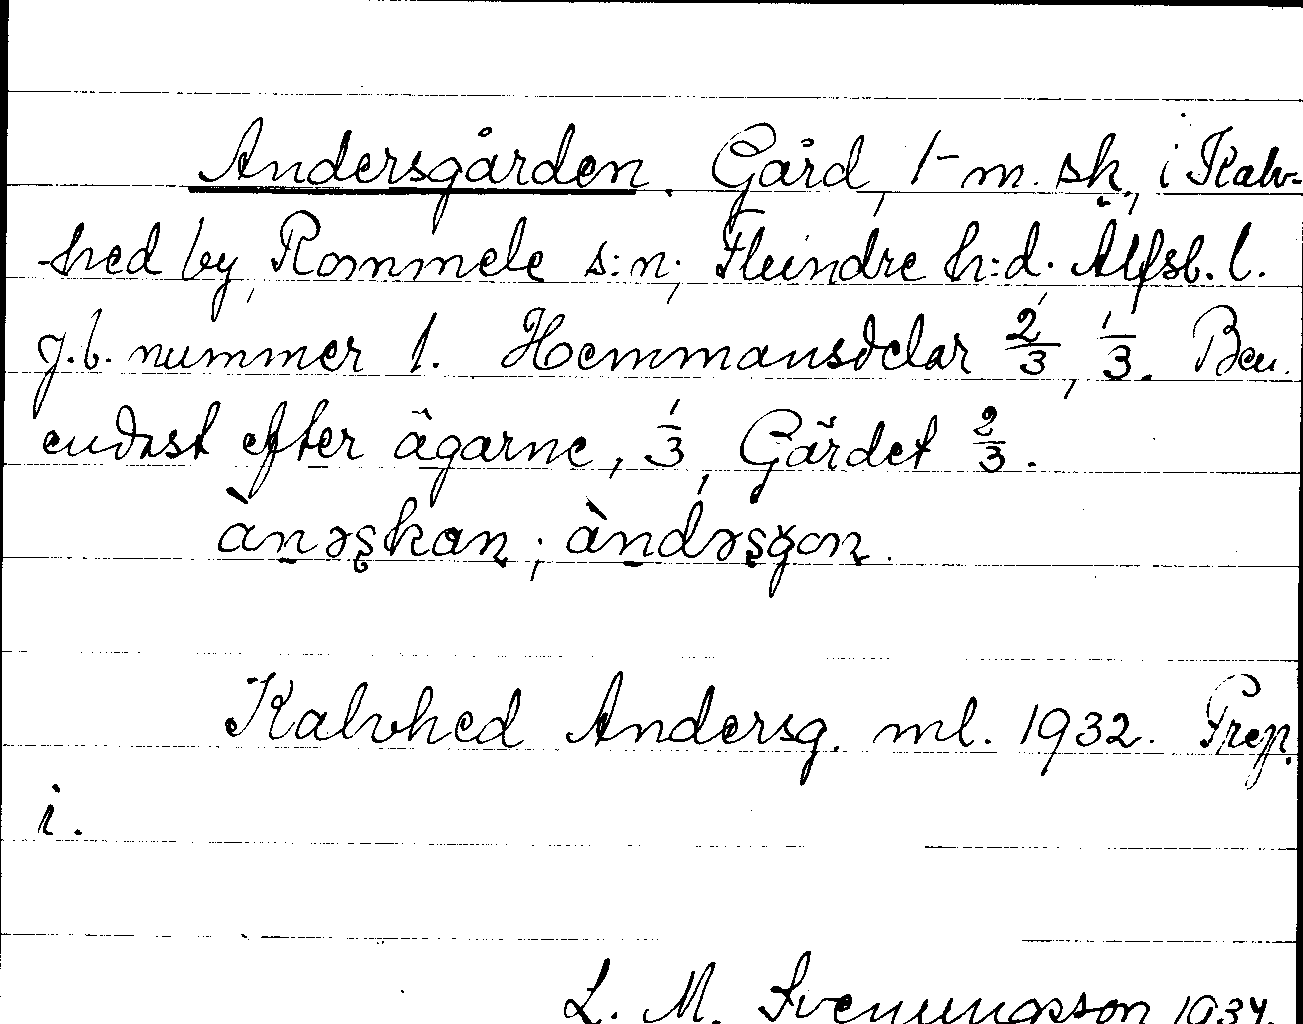 Andersgården. Gård, 1 m. sk., i Kalv-
hed by, Rommele s:n, Fleindre h:d. Älfsb. l.
j.b. nummer 1. Hemmansdelar 2/3, 1/3. Ben.
endast efter ägarne, 1/3, Gärdet 2/3.
ànəʂkan; àndəʂgɑn.
Kalvhed Andersg. ml. 1932. Prep.
i.
L. M. Svenungsson 1934.